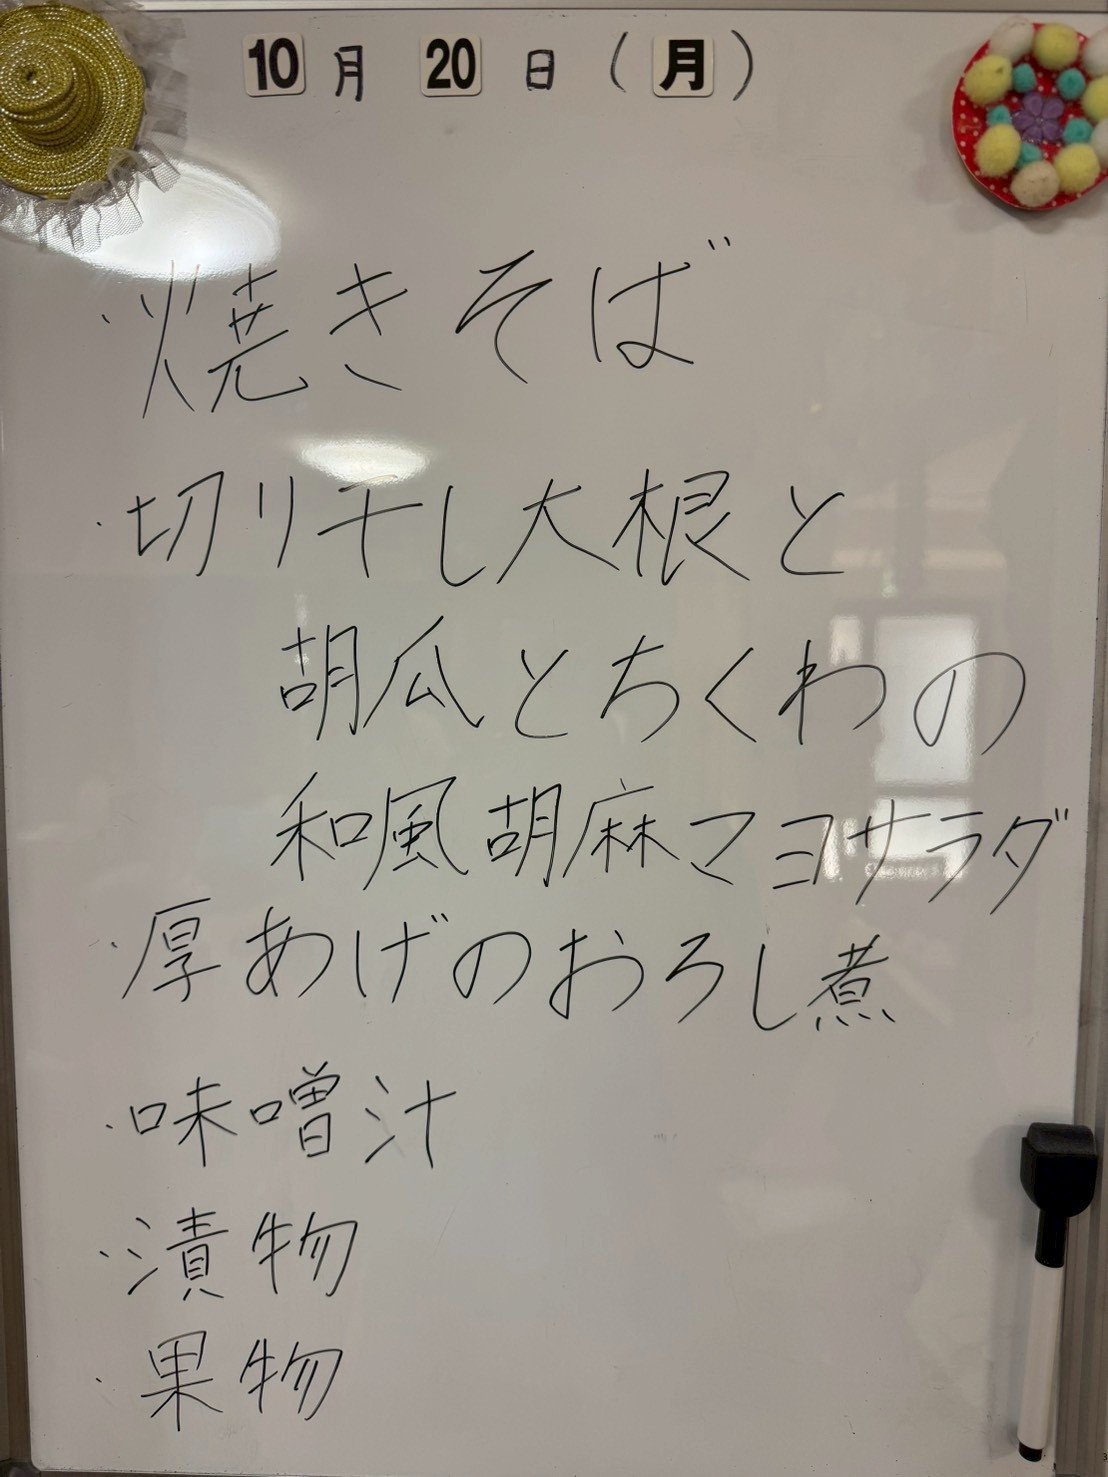 10月20日(月)
・焼きそば
・切り干し大根と
胡瓜とちくわの
和風胡麻マヨサラダ
・厚あげのおろし煮
・味噌汁
・漬物
・果物